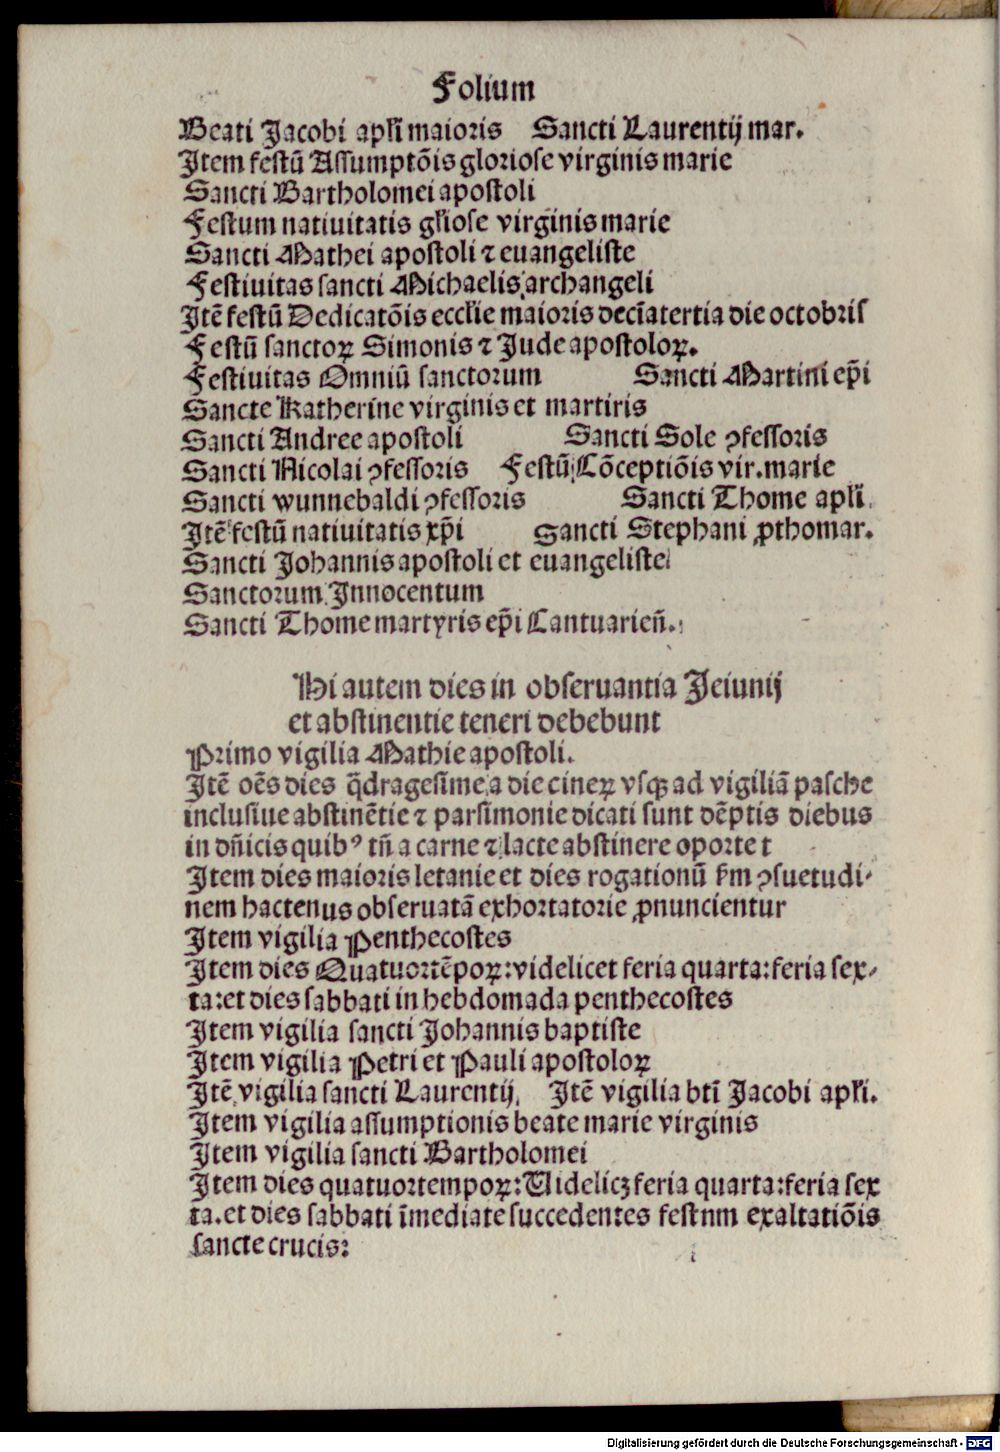 Folium
Beati Jacobi apłi maioris Sancti Laurentij mar.
Jtem festū Assumptōis gloriose virginis marie
Sancti Bartholomei apostoli
Festum natiuitatis głiose virginis marie
Sancti Mathei apostoli ⁊ euangeliste
Festiuitas sancti Michaelis archangeli
Jtē festū Dedicatōis ecclie maioris deciatertia die octobris
Festū sanctoꝝ Simonis ⁊ Jude apostoloꝝ.
Festiuitas Omniū sanctorum Sancti Martini ep̄i
Sancte Katherine virginis et martiris
Sancti Andree apostoli Sancti Sole ꝯfessoris
Sancti Nicolai ꝯfessoris Festū Cōceptiōis vir. marie
Sancti wunnebaldi ꝯfessoris Sancti Thome apłi
Jtē festū natiuitatis xp̄i Sancti Stephani ꝓthomar.
Sancti Johannis apostoli et euangeliste
Sanctorum Jnnocentum
Sancti Thome martyris ep̄i Cantuarien̄.
Hi autem dies in obseruantia Jeiunij
et abstinentie teneri debebunt
Primo vigilia Mathie apostoli.
Jtē oēs dies q̄dragesime a die cineꝝ vsqꝫ ad vigiliā pasche
inclusiue abstinētie ⁊ parsimonie dicati sunt dēptis diebus
in dn̄icis quibꝰ tn̄ a carne ⁊ lacte abstinere oporte t
Jtem dies maioris letanie et dies rogationū ẜm ꝯsuetudi-
nem hactenus obseruatā exhortatorie ꝓnuncientur
Jtem vigilia Penthecostes
Jtem dies Quatuortēpoꝝ: videlicet feria quarta: feria sex-
ta: et dies sabbati in hebdomada penthecostes
Jtem vigilia sancti Johannis baptiste
Jtem vigilia Petri et Pauli apostoloꝝ
Jtē vigilia sancti Laurentij. Jtē vigilia btī Jacobi apłi.
Jtem vigilia assumptionis beate marie virginis
Jtem vigilia sancti Bartholomei
Jtem dies quatuortempoꝝ: Videlicꝫ feria quarta: feria sex
ta. et dies sabbati īmediate succedentes festnm exaltatiōis
sancte crucis:
Digitalisierung gefördert durch die Deutsche Forschungsgemeinschaft - DFG